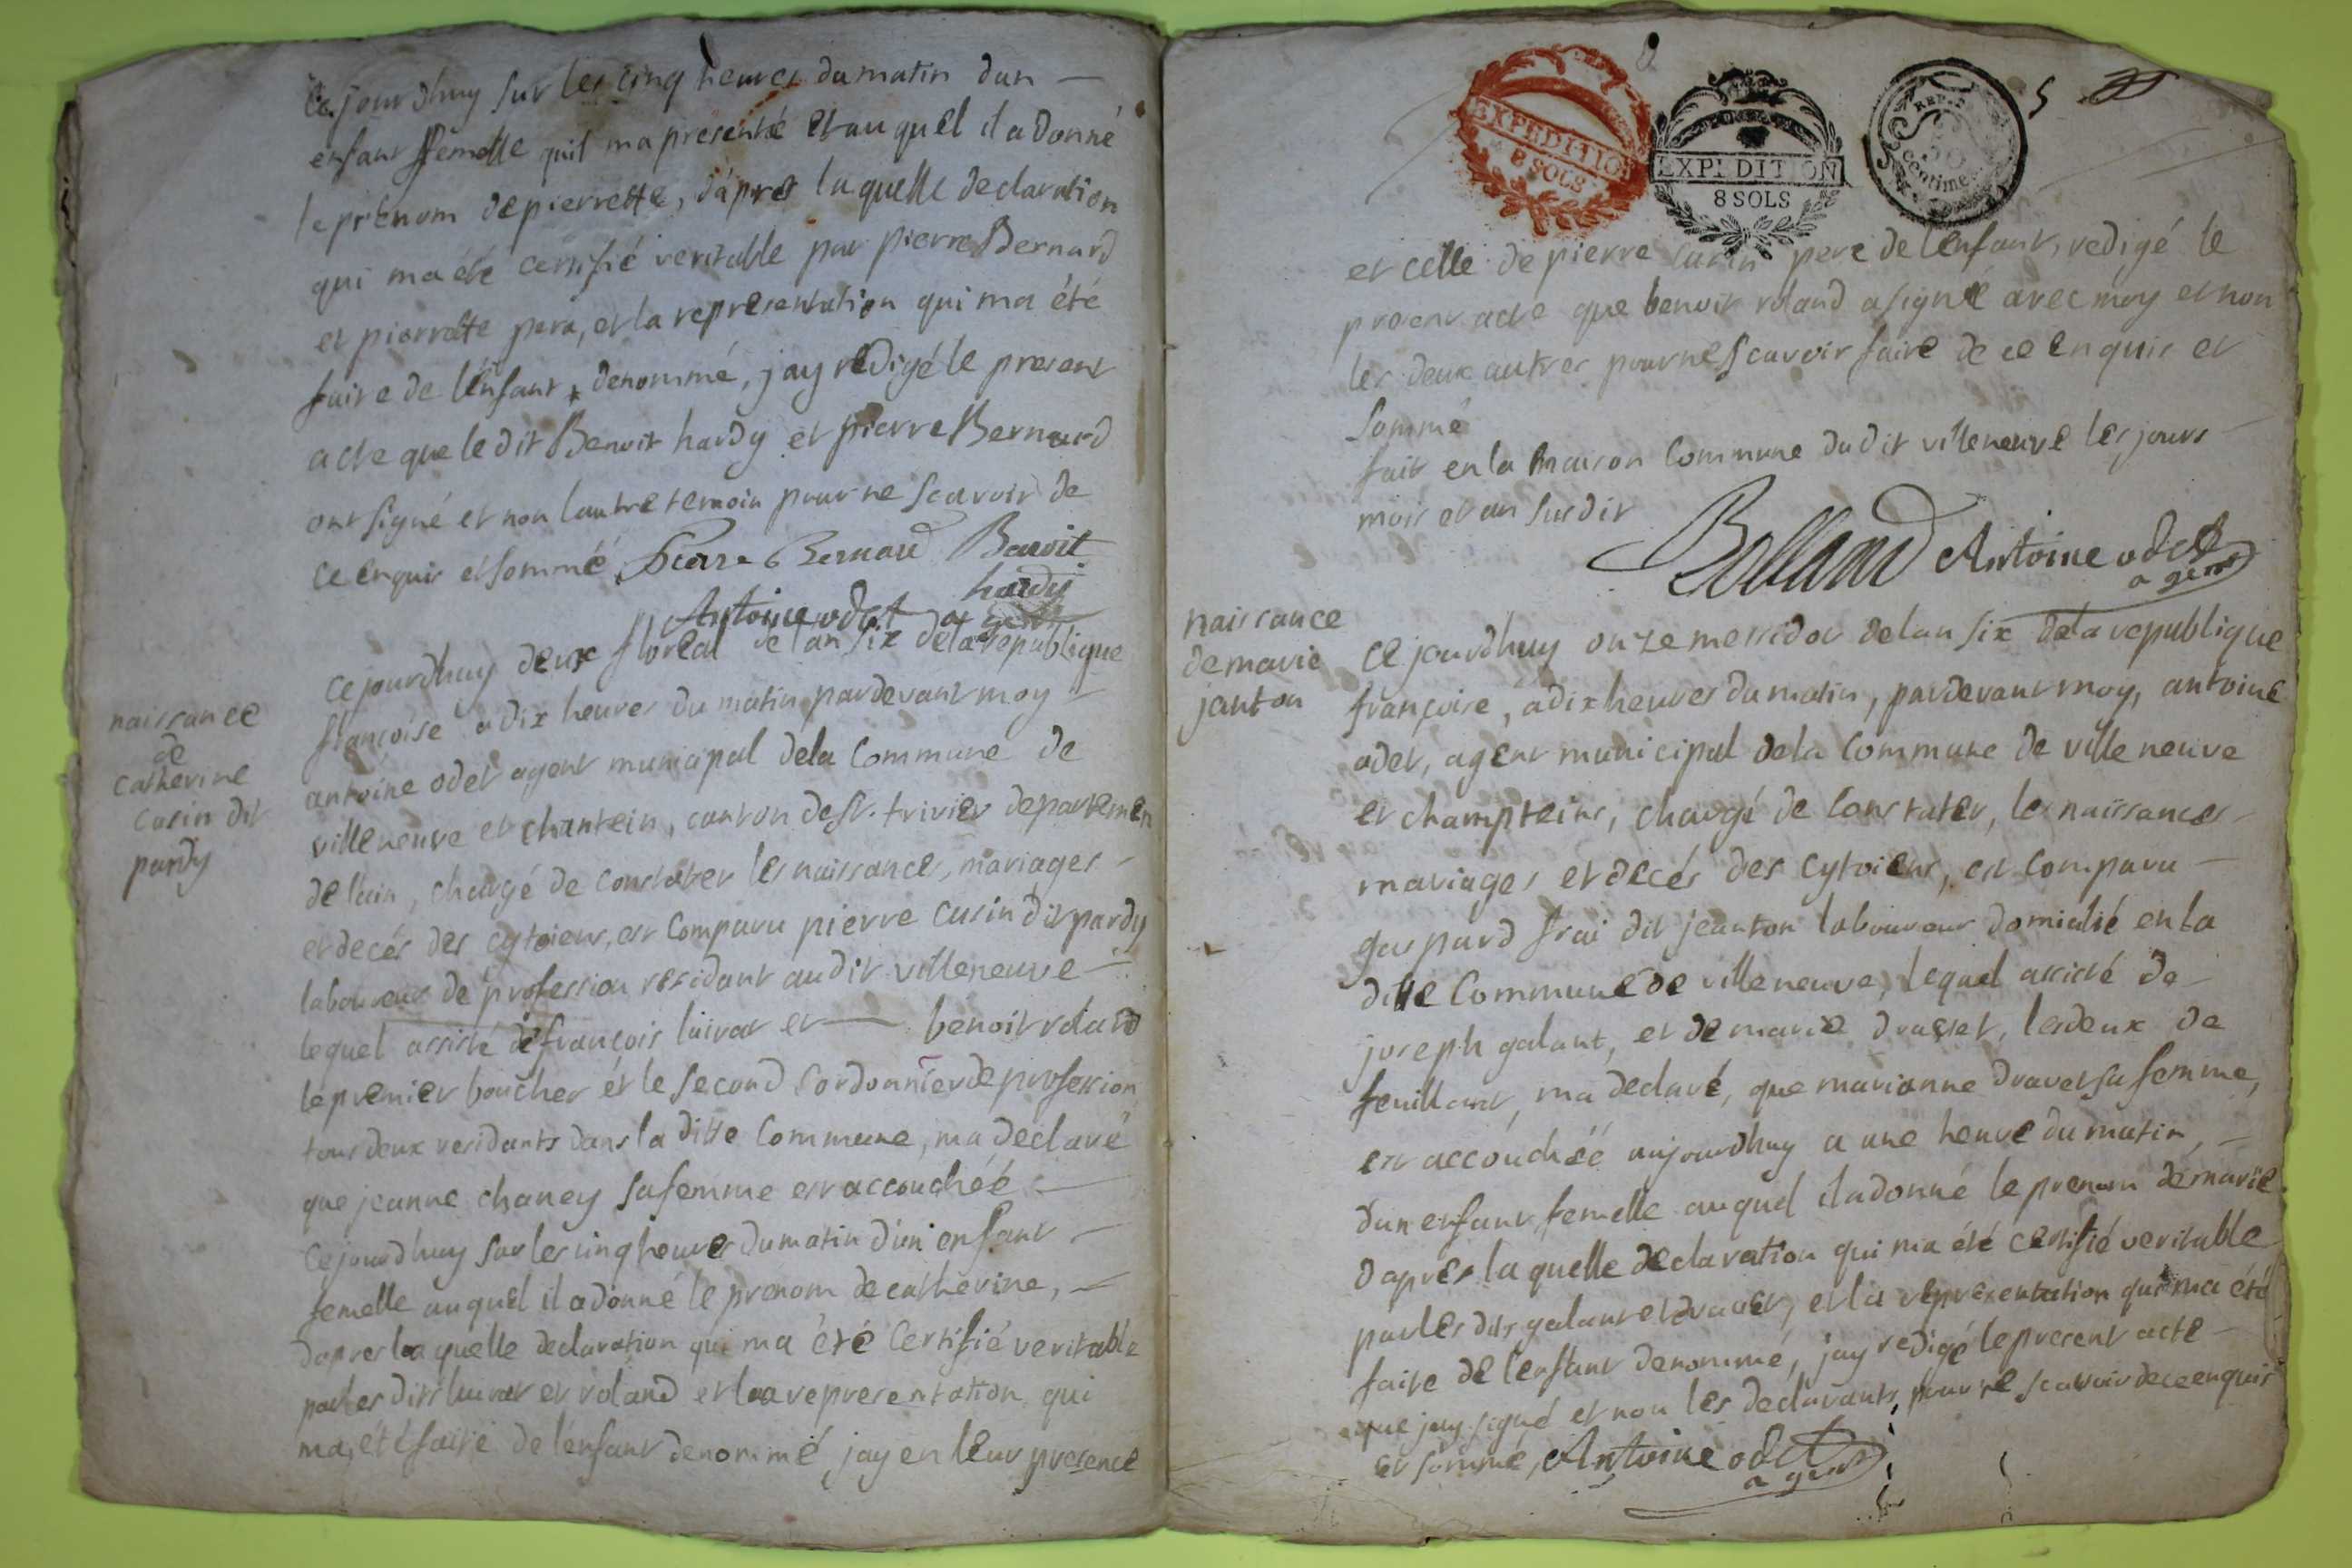 Ce jourdhuy sur les cinq heures du matin dun
enfant femelle quil ma presenté et au quel il a donné
le prénom de pierrette, dápres la quelle declaration
qui ma été certifié veritable par pierre Bernard
et pierrette pera, et la representation qui ma été
faire de lénfant denommé, jay redigé le present
acte que le dit Benoit hardy et pierre Bernard
ont signé et non lautre temoin pour ne scavoir de
ce enquis et sommé Pierre Bernard Benoit
hardy
Antoine odet agent
naissance
de
catherine
cusin dit
pardy
ce jourdhuy deux floreal de lan six de la republique
françoise a dix heures du matin pardevant moy
antoine odet agent municipal dela Commune de
villeneuve et chantein, canton de st. trivier departemen
de lain, chargé de constater les naissances, mariages
et decés des cytoiens, est Comparu pierre cusin dit pardy
laboureur de profession residant au dit villeneuve
lequel assisté de françois luivat et benoit roland
le premier boucher et le second Cordonnier de profession
tous deux residants dans la ditte Commune, ma déclaré
que jeanne chaney sa femme est accouchéé
Ce jourdhuy sur les cinq heures du matin d'un enfant
femelle auquel il a donné le prénom de catherine,
dapres la quelle declaration qui ma été Certifié veritable
par les dits luivat et roland et la representation qui
ma été faite de lénfant denommé jay en leur presence
EXPEDITION
8 SOLS
EXPEDITION
8 SOLS
REP.
50
centime
5
et celle de pierre cusin pere de lénfant, redigé le
present acte que benoit roland a signé avec moy et non
les deux autres pour ne scavoir faire de ce enquis et
sommé
fait en la maison Commune du dit villeneuve les jours
mois et an susdit
Rolland Antoine odet
agent
naissance
de marie
janton
ce jourdhuy onze messidor de lan six de la republique
françoise, a dix heures du matin, pardevant moy, antoine
odet, agent municipal dela Commune de ville neuve
et champteins, chargé de Constater, les naissances
mariages et decés des cytoiens, est comparu
gaspard frai dit jeanton laboureur domicilié en la
ditte Commune de villeneuve, lequel assisté de
joseph galant, et de marie dravet, les deux de
feuillant, ma declaré, que marianne dravet sa femme,
est accouchéé aujourdhuy a une heure du matin,
dun enfant femelle auquel il a donné le prenom de marie
dapres la quelle declaration qui ma été certifié veritable
par les dits galant et dravet, et la representation qui ma été
faite de lenfant denommé, jay redigé le present acte
que jay signé et non les declarants pour ne scavoir de ce enquis
et sommé, Antoine odet
agent